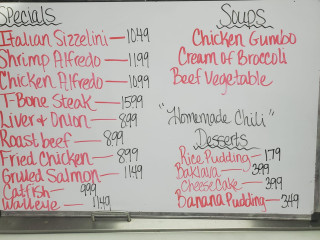 Specials
Italian Sizzelini — 10.49
Shrimp Alfredo — 11.99
Chicken Alfredo — 10.99
T-Bone Steak — 15.99
Liver & Onion — 8.99
Roast beef — 8.99
Fried Chicken — 8.99
Grilled Salmon — 11.49
Catfish — 9.99
Walleye — 11.49
Soups
Chicken Gumbo
Cream of Broccoli
Beef Vegetable
"Homemade Chili"
Desserts
Rice Pudding — 1.79
Baklava — 3.99
Cheese Cake — 3.99
Banana Pudding — 3.49